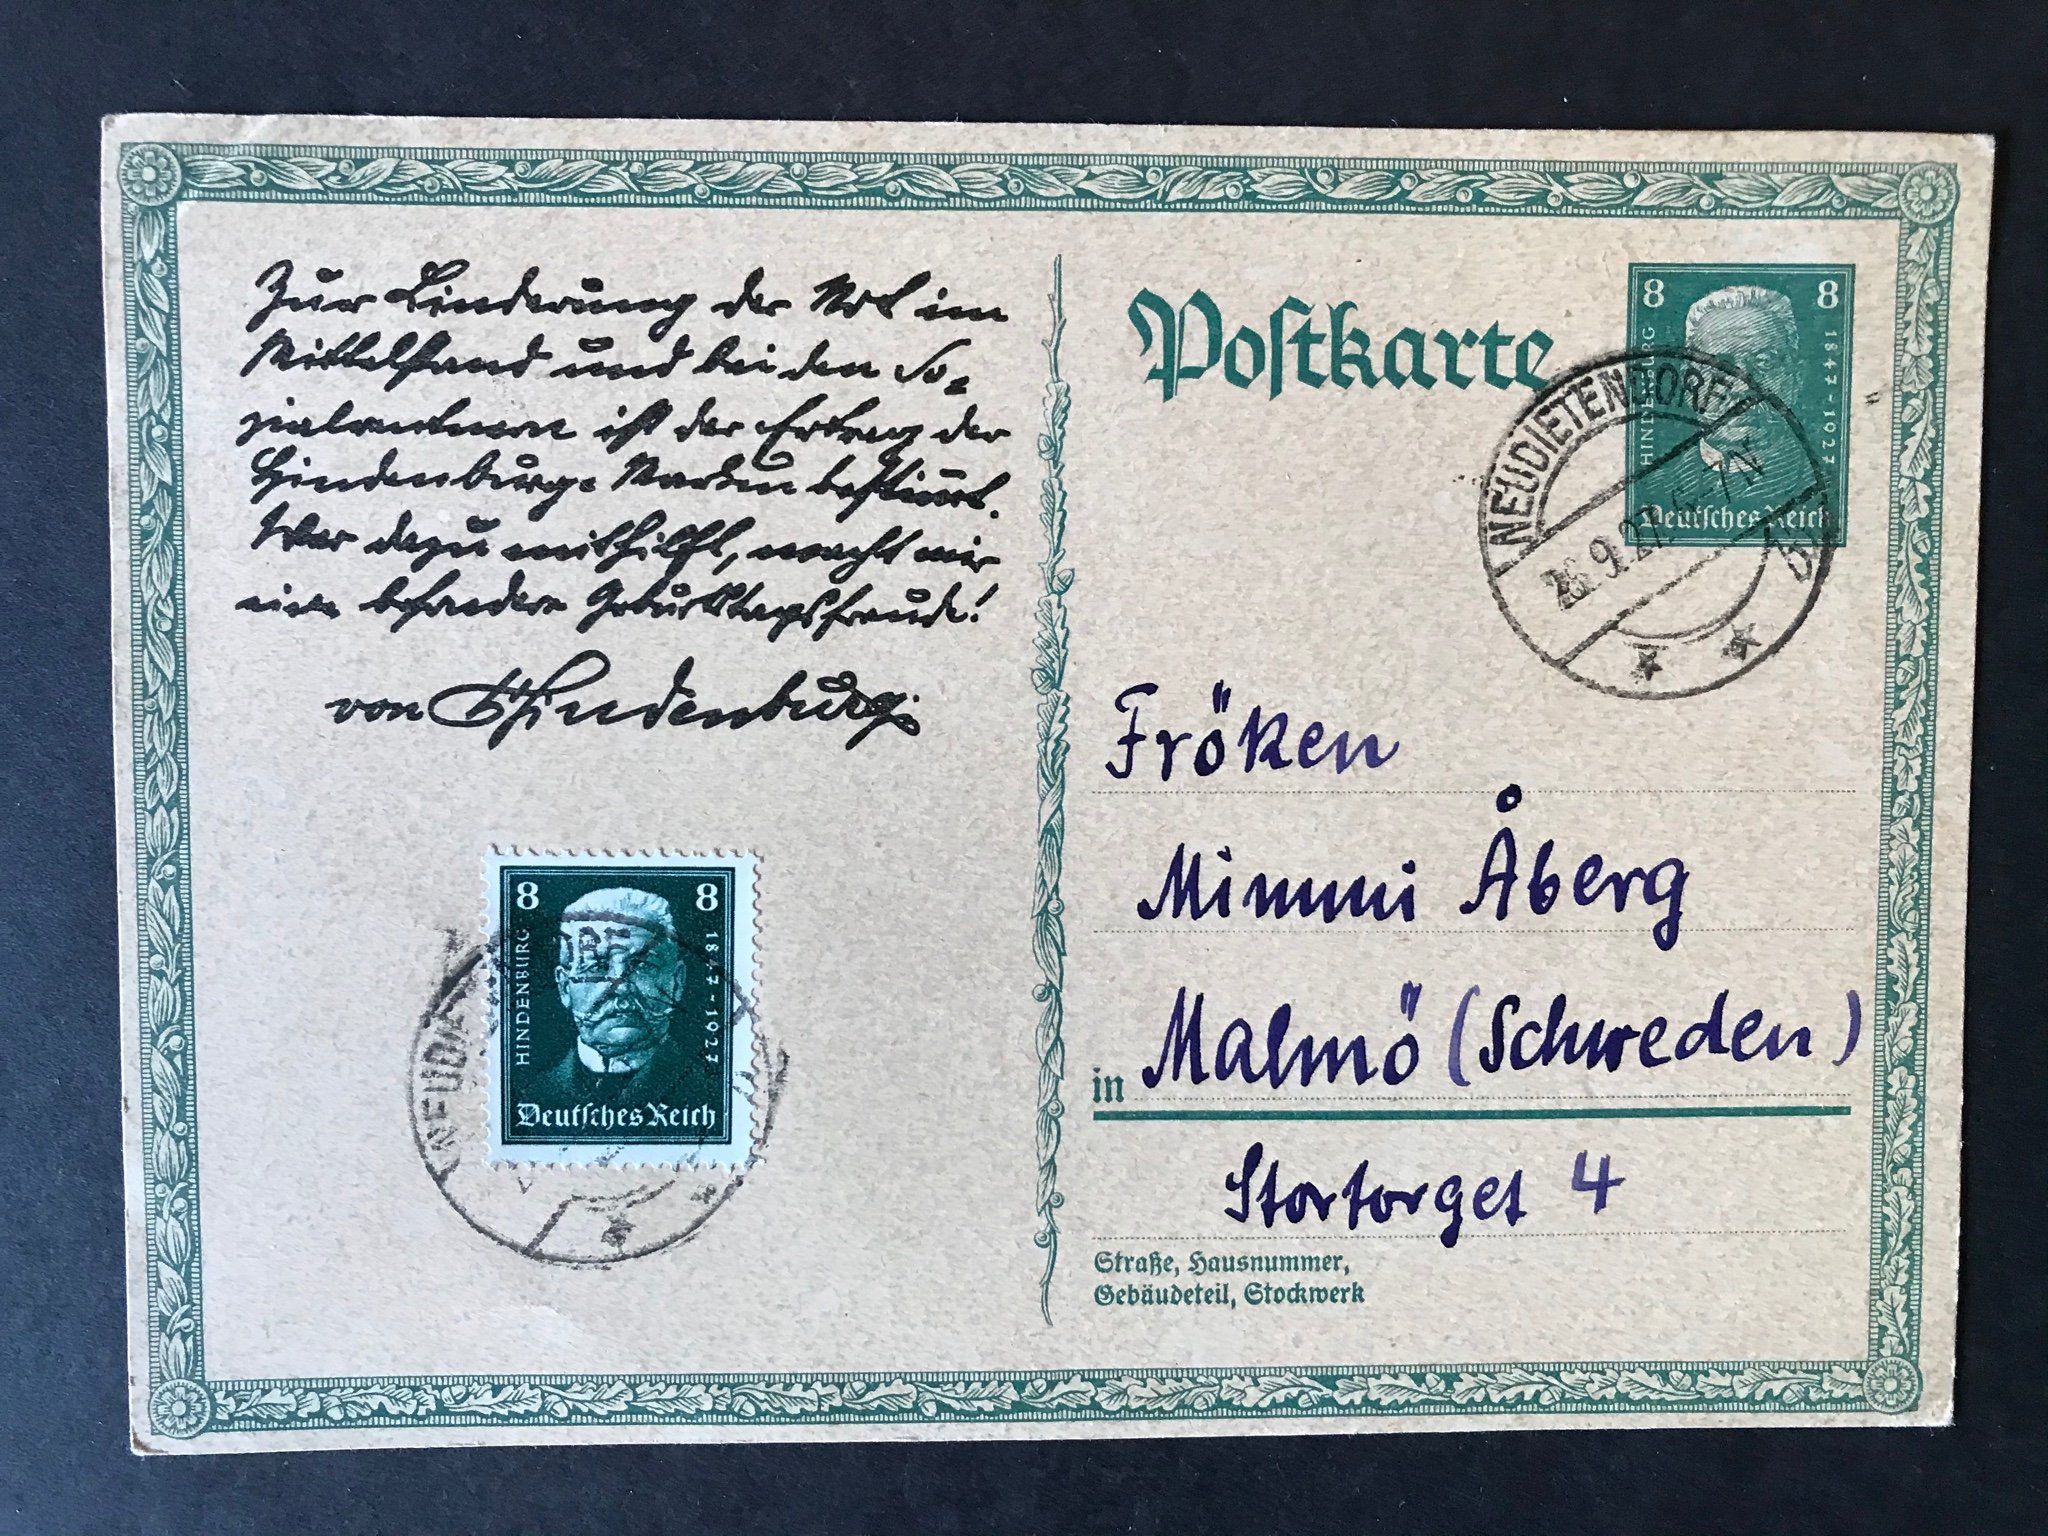 Zur Linderung der Not im
Mittelstand und bei den So-
zialrentnern ist der Ertrag der
Hindenburg-Marken bestimmt.
Wer dazu mithilft, macht mir
eine besondere Geburtstagsfreude!
von Hindenburg.
8 8
HINDENBURG
1847-1927
Deutsches Reich
NEUDIE DORF
Postkarte
8 8
HINDENBURG
1847-1927
Deutsches Reich
NEUDIETENDORF
9.27. 6-7N
Fröken
Mimmi Åberg
in Malmö (Schweden)
Stortorget 4
Straße, Hausnummer,
Gebäudeteil, Stockwerk